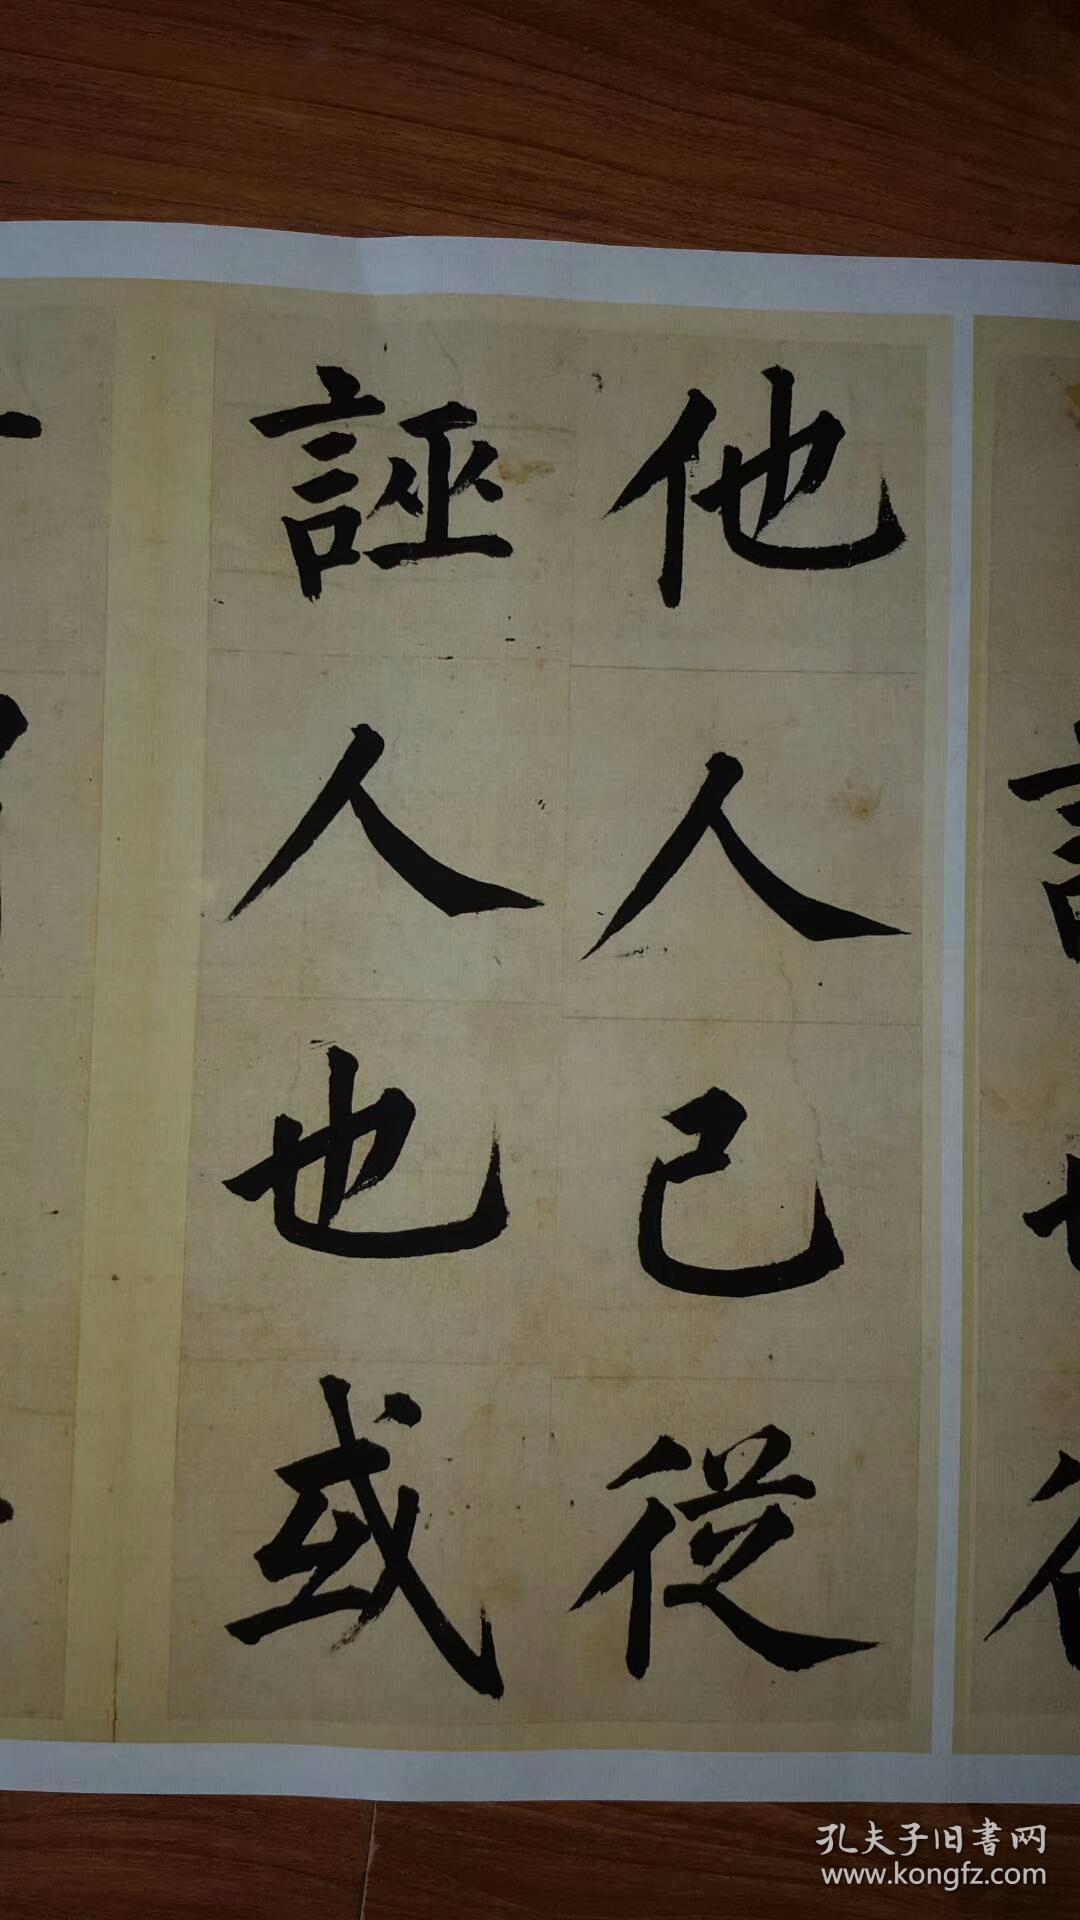 他人己從
誣人也或
孔夫子旧書网
www.kongfz.com